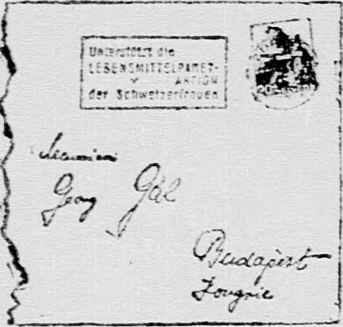 Unterstützt die
LEBENSMITTELPAKET-
AKTION
der Schweizerfrauen
Georg Gál
Budapest